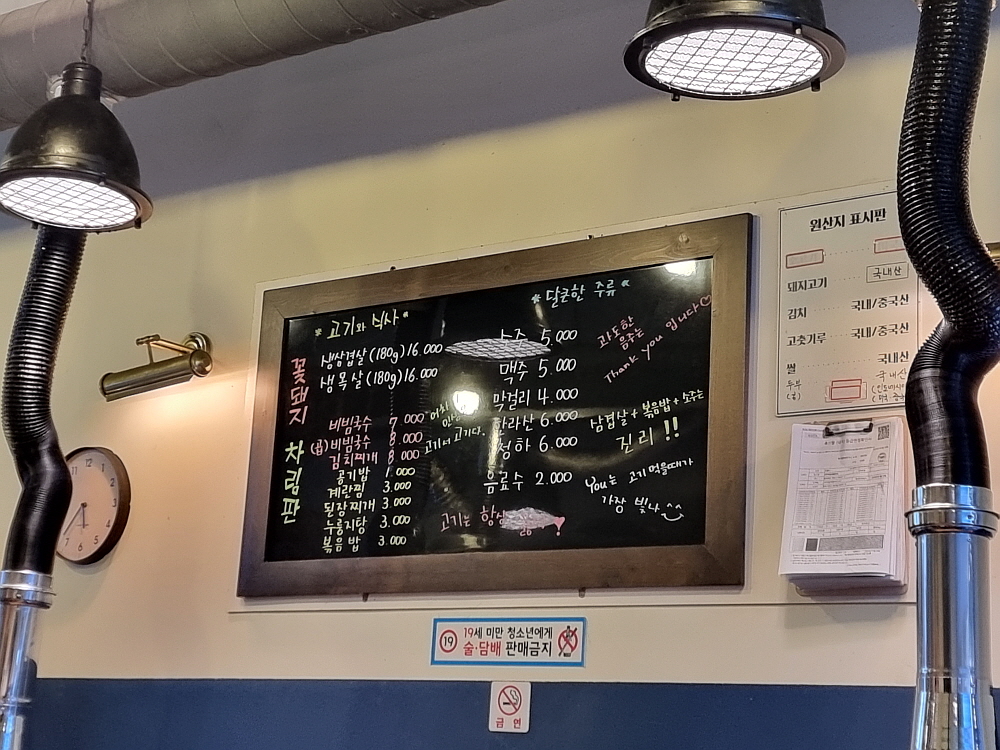 꽃돼지 차림판
* 고기와 식사 *
생삼겹살 (180g) 16.000
생목살 (180g) 16.000
비빔국수 7.000
(곱)비빔국수 8.000
김치찌개 8.000
공기밥 1.000
계란찜 3.000
된장찌개 3.000
누룽지탕 3.000
볶음밥 3.000
고기서 고기다.
* 달큰한 주류 *
소주 5.000
맥주 5.000
막걸리 4.000
한라산 6.000
청하 6.000
음료수 2.000
고기는 항상
과도한
음주는
Thank You 입니다♡
삼겹살 + 볶음밥 + 소주는
진리 !!
You는 고기 먹을때가
가장 빛나 ^^
원산지 표시판
돼지고기 국내산
김치 국내/중국산
고춧가루 국내/중국산
쌀 국내산
두부
(콩)
12
1
2
3
4
5
6
7
8
9
10
11
19
19세 미만 청소년에게
술·담배 판매금지
금 연